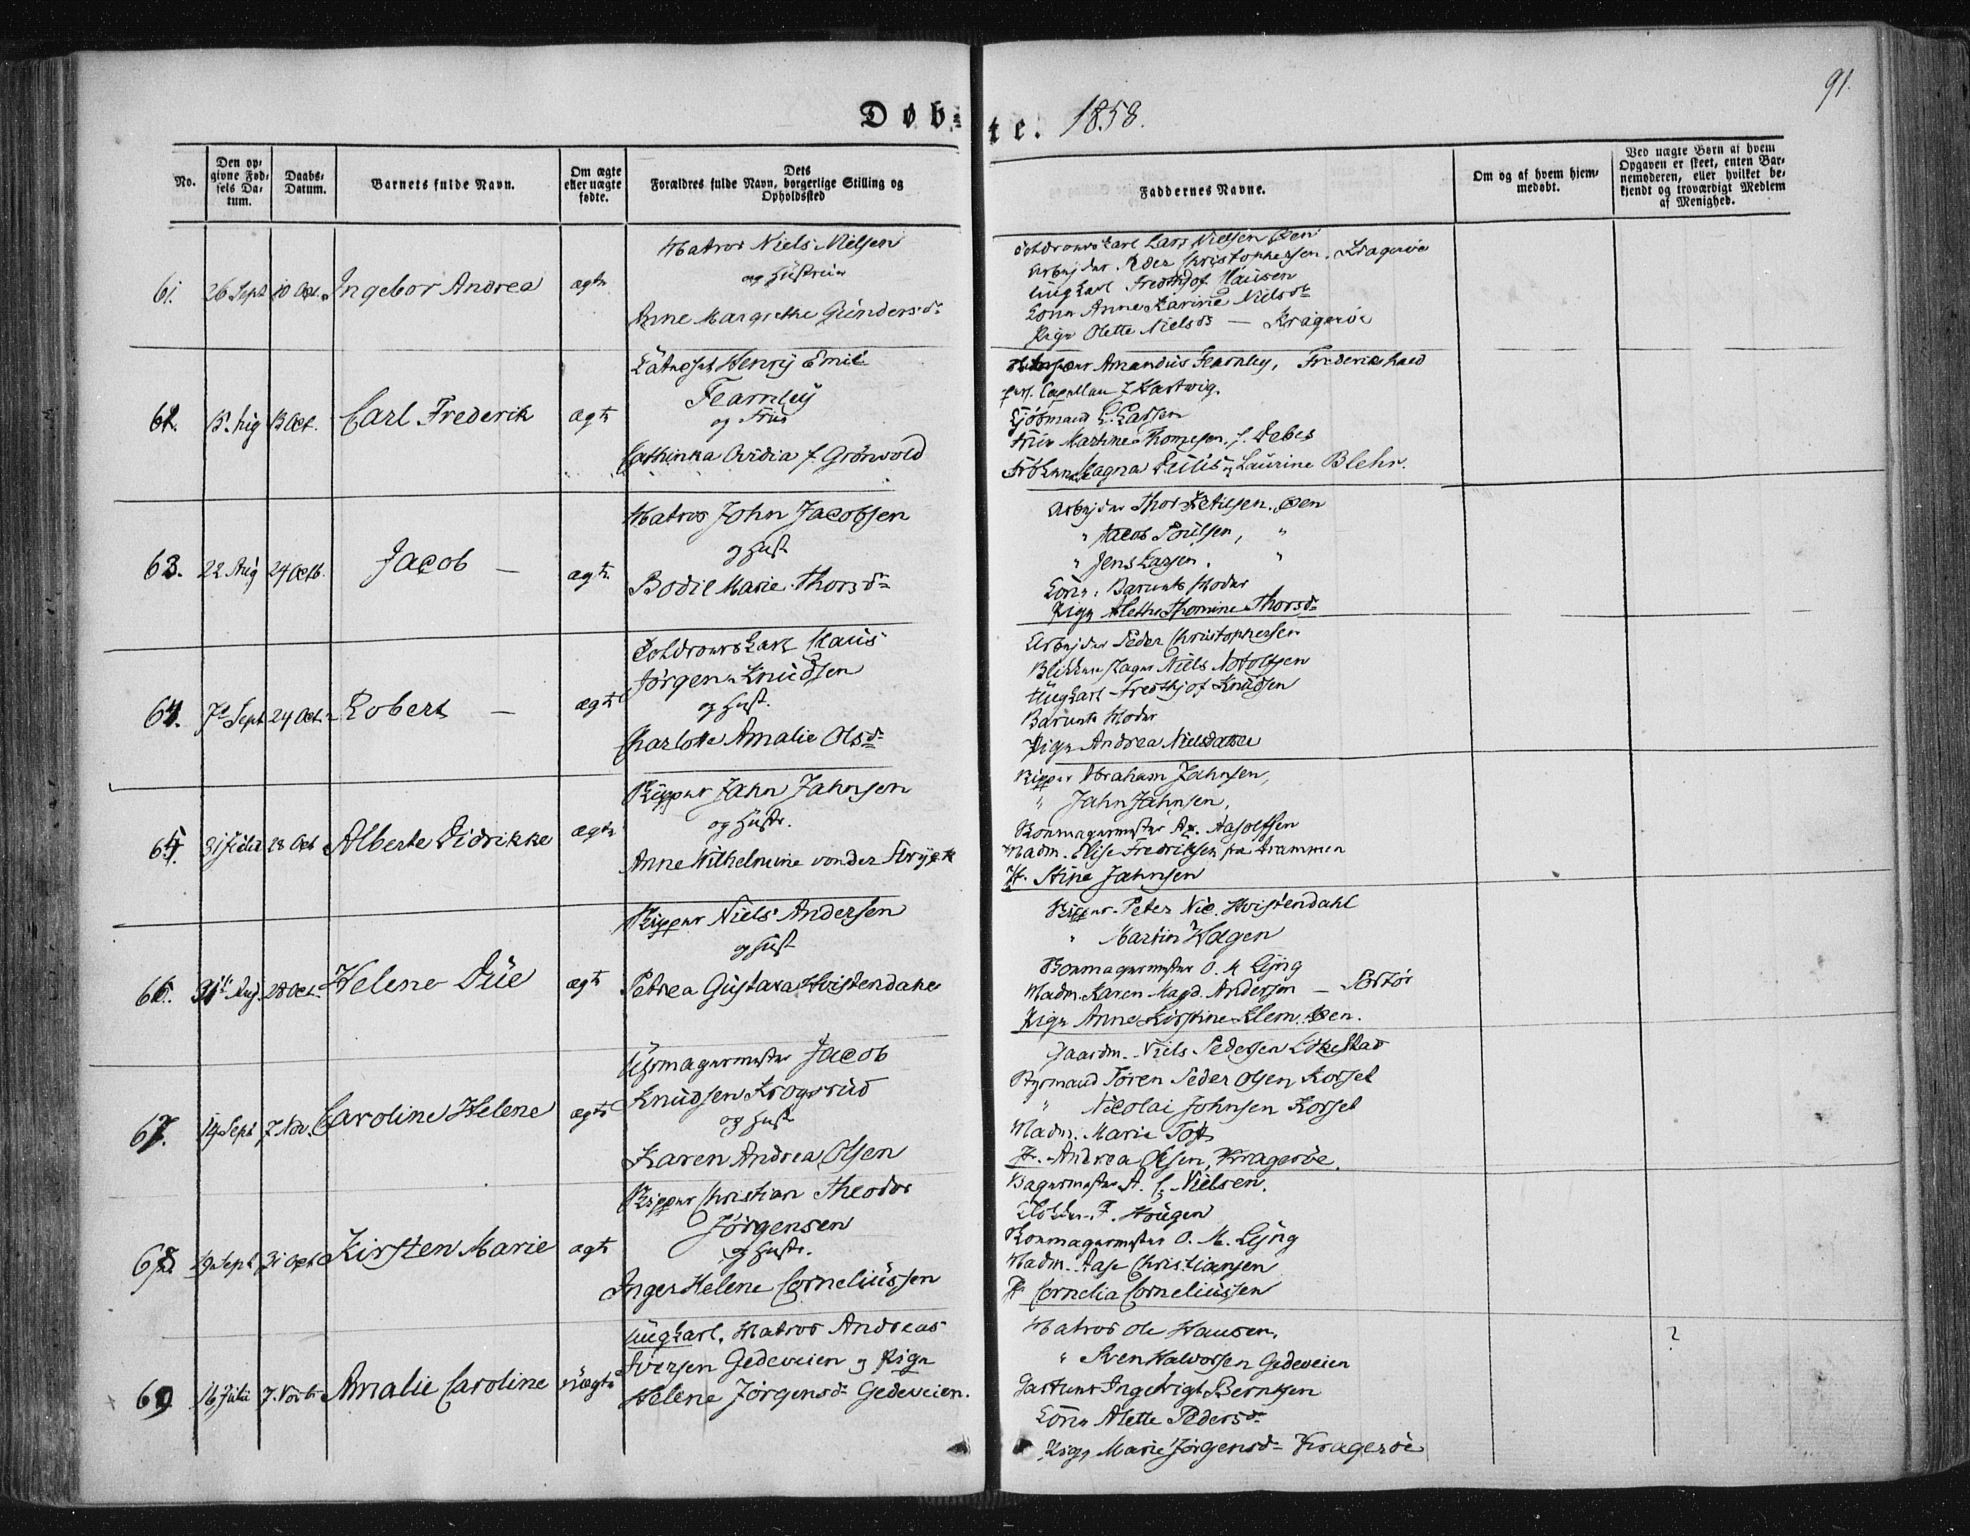 Døb-
te. 1858.
91.
No.
Den op-
givne Fød-
sels Da-
tum.
Daabs-
Datum.
Barnets fulde Navn.
Om ægte
eller uægte
fødte.
Dets
Forældres fulde Navn, borgerlige Stilling og
Opholdssted
Faddernes Navne.
Om og af hvem hjem-
medøbt.
Ved uægte Børn af hvem
Opgaven er skeet, enten Bar-
nemoderen, eller hvilket be-
kjendt og troværdigt Medlem
af Menighed.
61. 26 Sept 10 Oct. Ingebor Andrea ægte
Matros Niels Nielsen
og Hustrue
Anne Margrethe Gundersd:
Lars Nielsen Øen
Arbejder Peder Christophersen. Kragerøe
Ungkarl Fredthjof Hansen
Kone Anne Karine Nielsdr
Pige Olette Nielsdr — Kragerøe
62. 13 Oct. Carl Frederik ægte
Henrij Emil
Fearnley
og Frue
Cathinka Ovidia f. Grönvold
Amandus Fearnley, Frederikshald
pers. Capellan Hartwig.
Kjöbmand L. Larsen
Frue Martine Thomesen, f. Debes
Frökene Magna Juliis og Laurine Blehr.
63. 22 Aug 24 Octb. Jacob — ægte.
Matros John Jacobsen
og Hust
Bodil Marie Thorsdr
Arbejder Thor Ketilsen. Øen
" Jacob Poulsen, "
" Jens Larsen. "
Kone, Barnets Moder
Pige Alethe Thomine Thorsdr
64. 7de Sept 24 Oct. Robert — ægte
Toldroerskarl Hans
Jörgen Knudsen
og Hust.
Charlotte Amalie Olsdr
Arbejder Peder Christophersen
Niels Adolfsen
Ungkarl Fredthjof Knudsen
Barnets Moder
Pige Andrea Nielsdatter
65. 28 Oct Alberte Didrikke ægte
Skipper Jahn Jahnsen
og Hustr.
Anne Wilhelmine von der
Skipper Abraham Jahnsen,
" Jahn Jahnsen,
Skomagermester
Madm. Elise Fredriksen fra Drammen
Jf. Stine Jahnsen
66. 31te Aug 28 Oct. Helene Düe ægte
Skipper Niels Andersen
og Hust
Petrea Gustava Hvistendahl
Skipper Peter Nic. Hvistendahl
" Martin Hagen
Skomagermester O. M. Lyng
Madm. Karen Magd. Anderson — Portör
Pige Anne Kirstine Klem. Øen.
67. 14 Sept 7 Nov. Caroline Helene ægte
Uhrmagermester Jacob
Knudsen Krogsrud
og Hust
Karen Andrea Olsen
Gaardm. Niels Pedersen
Styrmand Sören Peder Olsen Korset
" Nicolai Johnsen Korset
Madm. Marie
Jf. Andrea Olsen, Kragerøe.
68. 19 Sept 31 Oct Kirsten Marie ægte
Skipper Christian Theodor
Jörgensen
og Hustr.
Inger Helene Corneliussen
Bagermester A. C. Nielsen.
F. Haugen
Skomagermester O. M. Lyng
Madm. Aase Christiansen
Jf Cornelia Corneliussen
69 16 Juli 7. Novbr Amalie Caroline uægte
Ungkarl. Matros Andreas
Iversen Gedeveien og Pige
Helene Jörgensdr Gedeveien.
Matros Ole Hansen.
" Sven Halvorsen Gedeveien
Gartner Ingebrigt Berntsen
Kone Alette Pedersdr
Pige Marie Jörgensdr Kragerøe
?